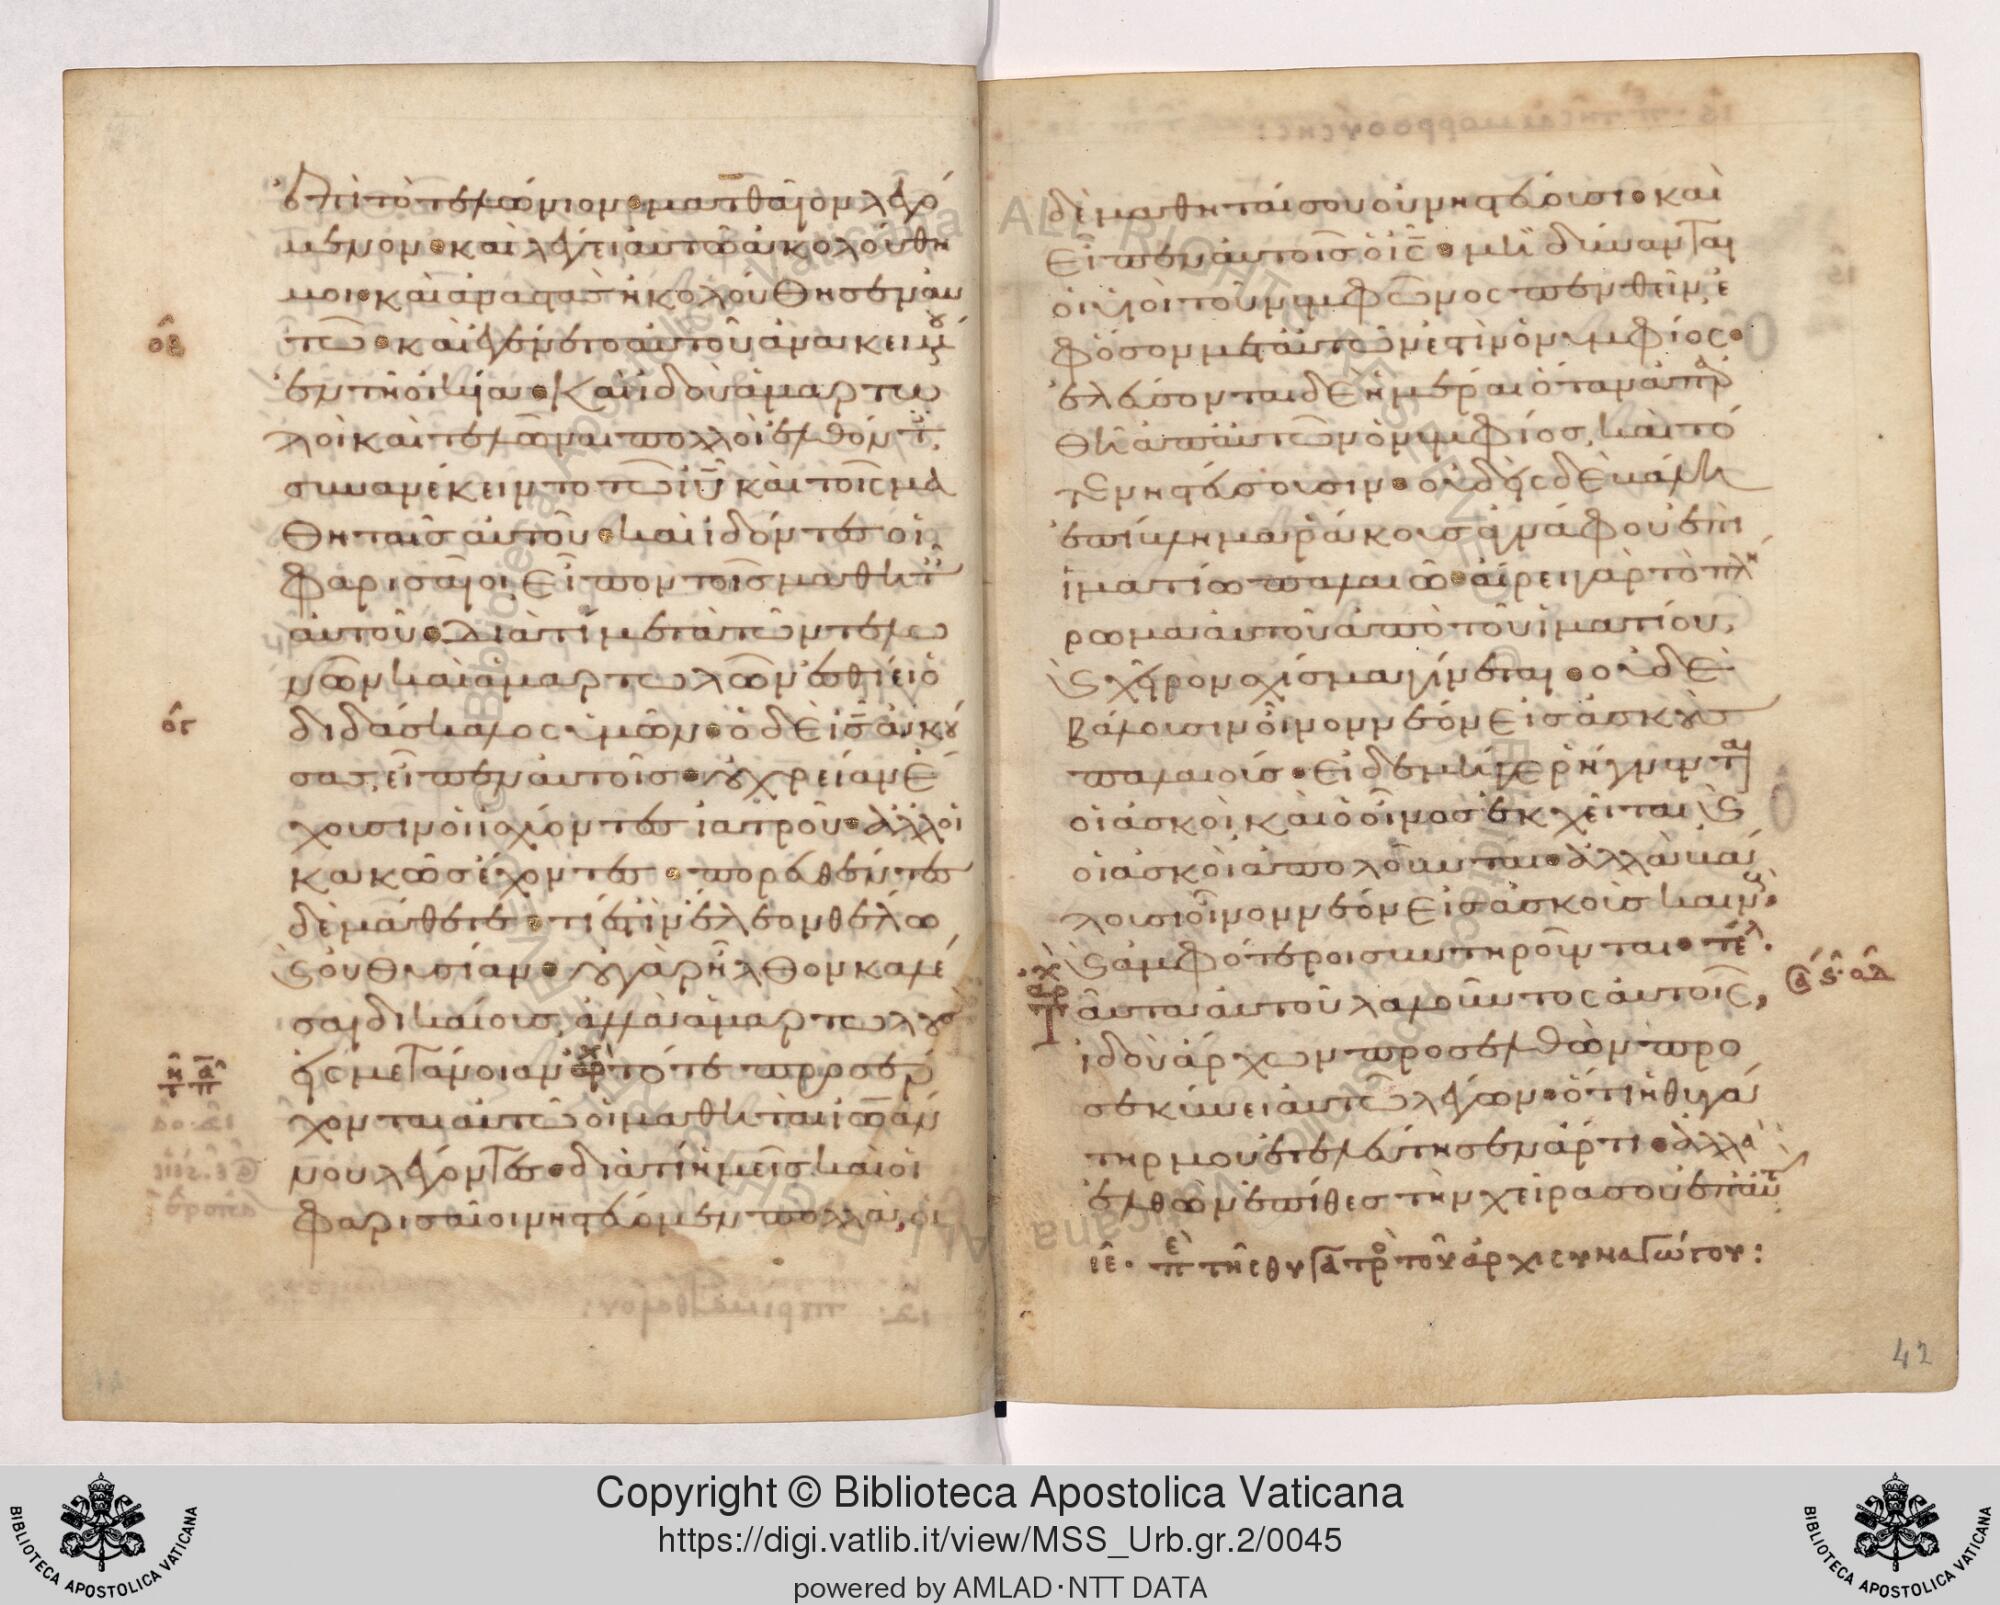 ἐπὶ τὸ τελώνιον· ματθαῖον λεγό
μενον· καὶ λέγει αὐτῶ ἀκολούθη
μοι· καὶ ἀναστὰς ἠκολούθησεν αυ
τῶ· καὶ ἐγένετο αὐτοῦ ἀνακειμ
οβ
ἐν τῆ οἰκία· Καὶ ἰδοὺ ἁμαρτω
λοὶ καὶ τελῶναι πολλοὶ ἐλθόντ
συνανέκειντο τῶ ιῦ καὶ τοῖς μα
θηταῖς αὐτοῦ· καὶ ἰδόντες οἱ
φαρισαῖοι, εἶπον τοῖς μαθητ
αὐτοῦ· Διατί μετὰ τῶν τελω
νῶν καὶ ἁμαρτωλῶν ἐσθίει ὁ
διδάσκαλος ὑμῶν· ὁ δὲ ις ἀκού
ογ
σας, εἶπεν αὐτοῖς· οὐ χρείαν ἔ
χουσιν οἱ ἰσχύοντες ἰατροῦ· ἀλλ' οἱ
κακῶς ἔχοντες· πορευθέντες
δὲ μάθετε· τί ἐστιν ἔλεον θέλω
καὶ οὐ θυσίαν· οὐ γὰρ ἦλθον καλέ
σαι δικαίους, ἀλλὰ ἁμαρτωλοὺς
εἰς μετάνοιαν ἀρχ τότε προσέρ
χονται αὐτῶ οἱ μαθηταὶ ἰωάν
νου λέγοντες· διατί ἡμεῖς καὶ οἱ
φαρισαῖοι νηστεύομεν πολλὰ, οἱ
δὲ μαθηταί σου οὐ νηστεύουσι· καὶ
εἶπεν αὐτοῖς ὁ ις· μὴ δύνανται
οἱ υἱοὶ τοῦ νυμφῶνος πενθεῖν, ἐ
φ' ὅσον μετ' αὐτῶν ἐστὶν ὁ νυμφίος·
ἐλεύσονται δὲ ἡμέραι ὅταν ἀπαρ
θῆ ἀπ' αὐτῶν ὁ νυμφίος, καὶ τό
τε νηστεύσουσιν· οὐδεὶς δὲ βάλλει
ἐπίβλημα ῥάκους ἀγνάφου ἐπὶ
ἱματίω παλαιῶ· αἴρει γὰρ τὸ πλή
ρωμα αὐτοῦ ἀπὸ τοῦ ἱματίου,
καὶ χεῖρον σχίσμα γίνεται· οὐδὲ
βάλουσιν οἶνον νέον εἰς ἀσκοὺς
παλαιούς· εἰ δὲ μήγε ῥήγνυνται
οἱ ἀσκοὶ, καὶ ὁ οἶνος ἐκχεῖται καὶ
οἱ ἀσκοὶ ἀπολοῦνται· ἀλλὰ βάλ
λουσι οἶνον νέον εἰς ἀσκοὺς καιν·
καὶ ἀμφότεροι συντηροῦνται· τελ.
ἀρχ
Ταῦτα αὐτοῦ λαλοῦντος αὐτοῖς,
ἰδοὺ ἄρχων προσελθὼν προ
σεκύνει αὐτῶ λέγων· ὅτι ἡ θυγά
τηρ μου ἐτελεύτησεν ἄρτι· ἀλλὰ
ἐλθὼν ἐπίθες τὴν χεῖρα σου ἐπ' αὐτ
ιε· πε τῆς θυγατρὸ τοῦ ἀρχισυναγώγου:
42
Copyright © Biblioteca Apostolica Vaticana
https://digi.vatlib.it/view/MSS_Urb.gr.2/0045
powered by AMLAD·NTT DATA
BIBLIOTECA APOSTOLICA VATICANA
BIBLIOTECA APOSTOLICA VATICANA